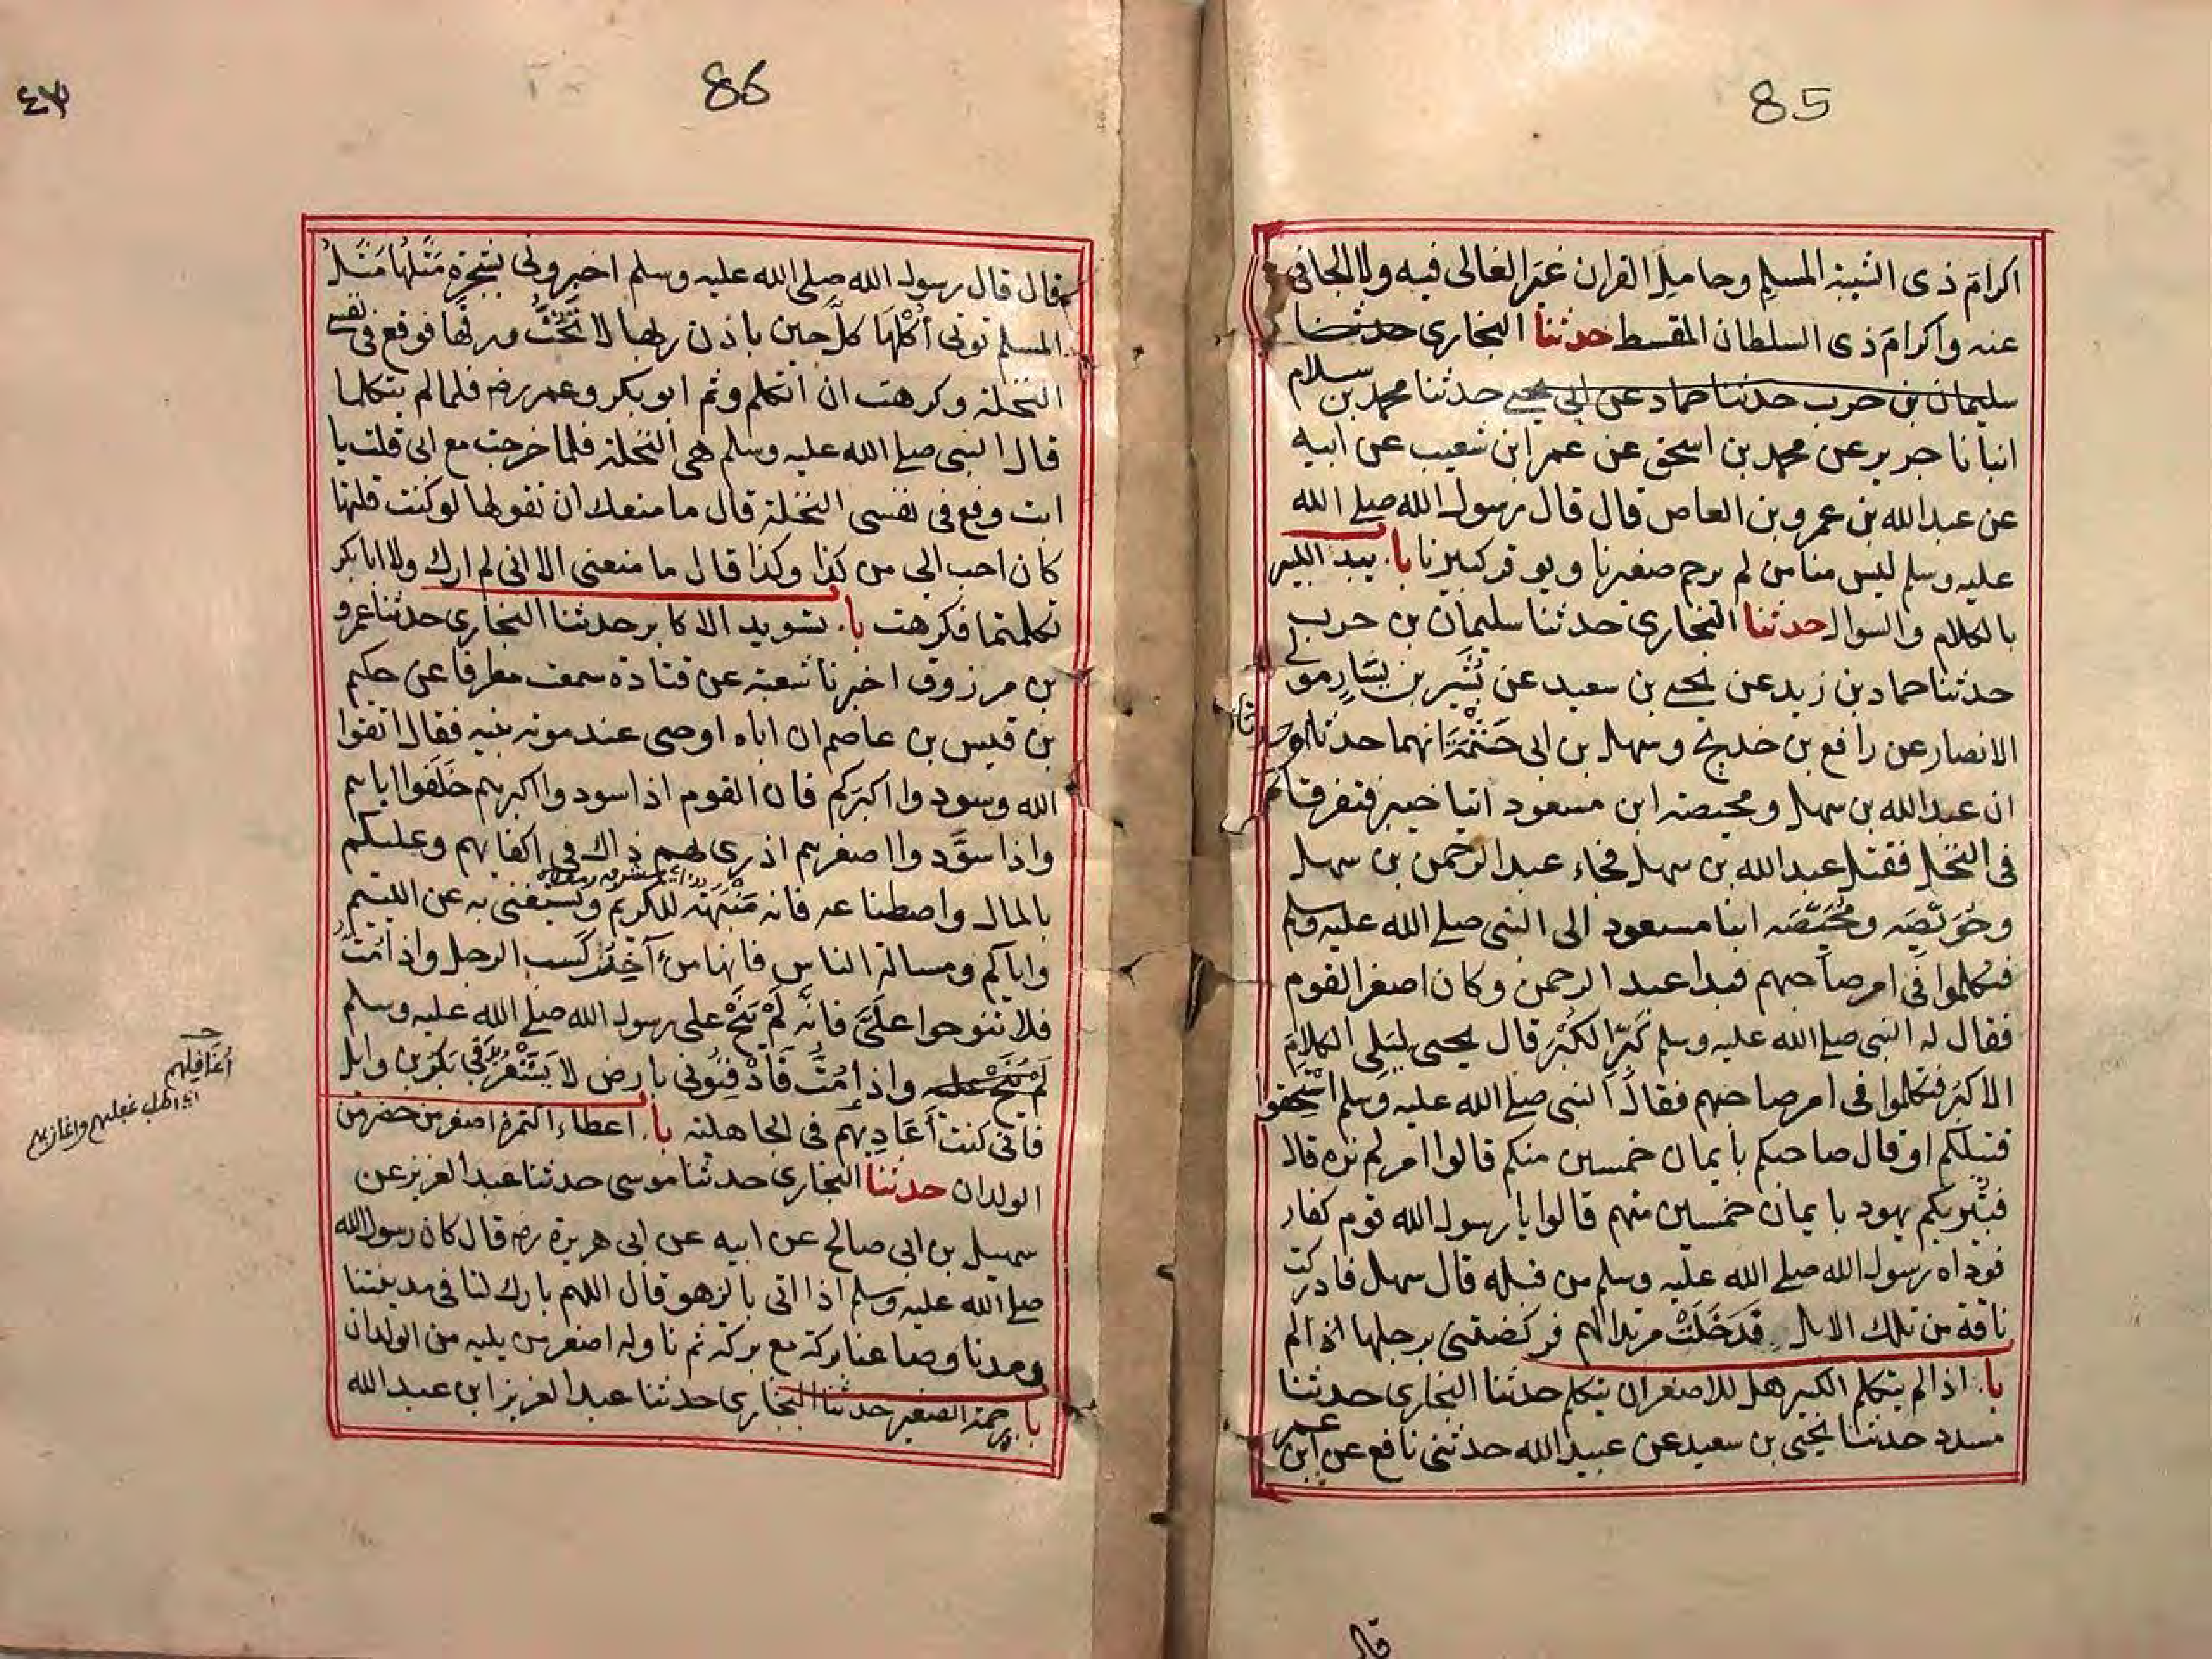 85
اكرامَ ذى الشيبة المسلم وحامل القران غيرَ الغالى فيه ولا الجافى
عنه واكرامَ ذى السلطان المقسط حدثنا البخارى حدثنا
سليمان بن حرب حدثنا حماد عن ابى يحيى حدثنا محمد بن سلام
انبانا جرير عن محمد بن اسحق عن عمر ابن شعيب عن ابيه
عن عبد الله بن عمرو بن العاص قال قال رسول الله صلى الله
عليه وسلم ليس منا من لم يرحم صغيرنا ويوقر كبيرنا با. يبدا الكبير
بالكلام والسوال حدثنا البخارى حدثنا سليمان بن حرب
حدثنا حماد بن زيد عن يحيى بن سعيد عن بُشَير بن يَسَارٍ مولى
الانصار عن رافع بن خديج وسهل بن ابى حَثْمَةَ انهما حدثا
ان عبد الله بن سهل ومحيصة ابن مسعود اتيا خيبر فتفرقا
فى النخل فقتل عبد الله بن سهل فجاء عبد الرحمن بن سهل
وحُوَيّصَة ومُحَيّصَة ابنا مسعود الى النبى صلى الله عليه وسلم
فتكلموا فى امر صاحبهم فبدا عبد الرحمن وكان اصغر القوم
فقال له النبى صلى الله عليه وسلم كَبِّرِ الكُبْرَ قال يحيى ليَلى الكلامَ
الاكبرُ فتكلموا فى امر صاحبهم فقال النبى صلى الله عليه وسلم اتستحقوا
قتيلكم او قال صاحبكم بايمان خمسين منكم قالوا امر لم نره قال
فتُبريكم يهود بايمان خمسين منهم قالوا يا رسول الله قوم كفار
فوداه رسول الله صلى الله عليه وسلم من قبله قال سهل فادركت
ناقة من تلك الابل فدَخَلَتْ مربدا لهم فركضتنى برجلها
با. اذا لم يتكلم الكبير هل للاصغر ان يتكلم حدثنا البخارى حدثنا
مسدد حدثنا يحيى بن سعيد عن عبيد الله حدثنى نافع عن ابن عمر
قال
86
٤٣
قال قال رسول الله صلى الله عليه وسلم اخبرونى بشجرة مَثَلُهَا مَثَل
المسلم توتى اُكُلَهَا كلَّ حين باذن ربها لا تَحُتُّ ورقها فوقع فى نفسى
النخلة وكرهت ان اتكلم وثم ابو بكر وعمر رضه فلما لم يتكلما
قال النبى صلى الله عليه وسلم هى النخلة فلما خرجت مع ابى قلت يا
ابت وقع فى نفسى النخلة قال ما منعك ان تقولها لو كنت قلتها
كان احب الىّ من كذا وكذا قال ما منعنى الا انى لم ارك ولا ابا بكر
تكلمتما فكرهت با. تسويد الاكابر حدثنا البخارى حدثنا عمرو
بن مرزوق اخبرنا شعبة عن قتادة سمعت مطرفا عن حكيم
بن قيس بن عاصم ان اباه اوصى عند موته بنيه فقال اتقوا
الله وسودوا اكبرَكم فان القوم اذا سودوا اكبرهم خَلَفوا اباهم
واذا سوَّدوا اصغرهم ازرى بهم ذاك فى اكفايهم وعليكم
بالمال واصطناعه فانه مَنْبَهَة للكريم ويُستغنى به عن اللئيم
واياكم ومسالة الناس فانها من آخِرِ كَسب الرجل واذا مُتُّ
فلا تنوحوا علىَّ فانه لَمْ يُنَحْ على رسول الله صلى الله عليه وسلم
لَمْ يُنَحْ عليه واذا مُتُّ فَادْفِنُونى بارض لا يَشْعُرُ بدفنى بَكرُ بن وايل
فانى كنت اُعَادِيهم فى الجاهلية با. اعطاء الثمرة اصغر من حضر من
الولدان حدثنا البخارى حدثنا موسى حدثنا عبد العزيز عن
سهيل بن ابى صالح عن ابيه عن ابى هريرة رضه قال كان رسول الله
صلى الله عليه وسلم اذا اتى بالزهو قال اللهم بارك لنا فى مدينتنا
ومدنا وصاعنا بركة مع بركة ثم ناوله اصغر من يليه من الولدان
با. رحمة الصغير حدثنا البخارى حدثنا عبد العزيز ابن عبد الله
اُغَافِلهم